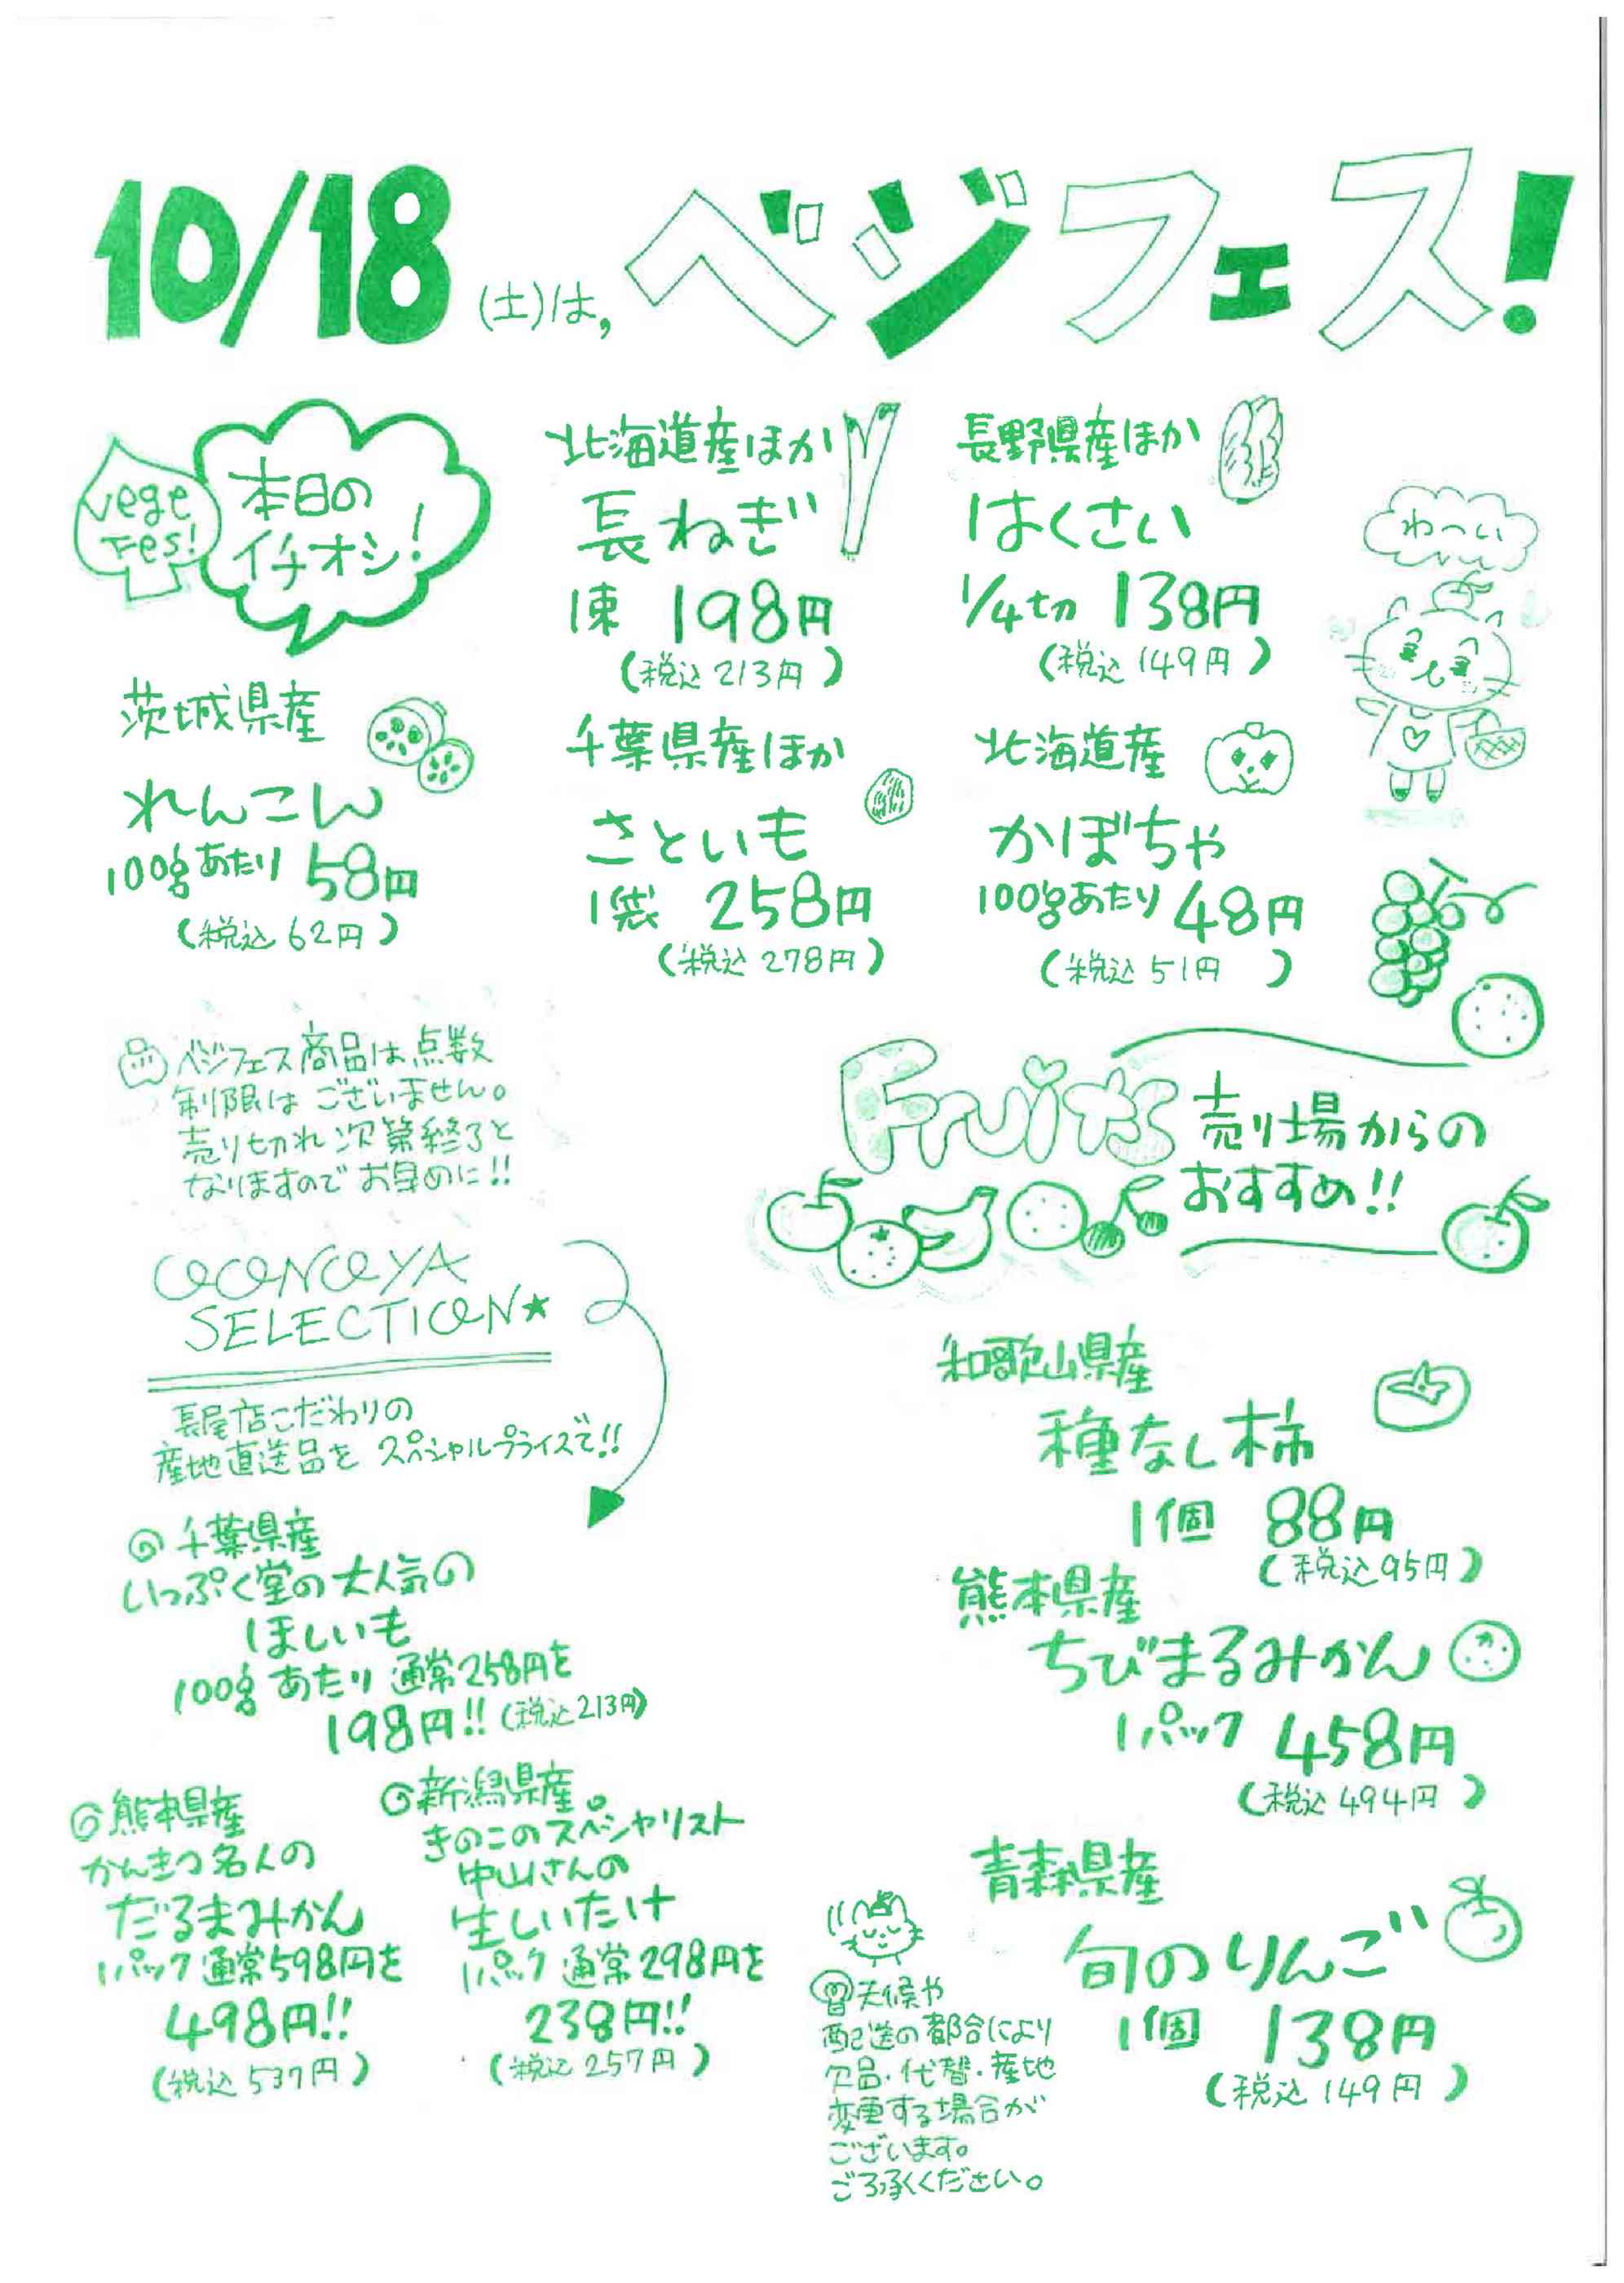 10/18(土)は,ベジフェス!
vege
Fes!
本日の
イチオシ!
茨城県産
れんこん
100gあたり 58円
(税込62円)
北海道産ほか
長ねぎ
1束 198円
(税込213円)
長野県産ほか
はくさい
1/4切 138円
(税込149円)
千葉県産ほか
さといも
1袋 258円
(税込278円)
北海道産
かぼちゃ
100gあたり 48円
(税込51円)
わ〜い
ベジフェス商品は点数
制限はございません。
売り切れ次第終了と
なりますのでお早めに!!
OCONOYA
SELECTION★
長尾店こだわりの
産地直送品をスペシャルプライスで!!
◎千葉県産
いっぷく堂の大人気の
ほしいも
100gあたり 通常258円を
198円!!(税込213円)
◎熊本県産
かんきつ名人の
だるまみかん
1パック 通常598円を
498円!!
(税込537円)
◎新潟県産。
きのこのスペシャリスト
中山さんの
生しいたけ
1パック 通常298円を
238円!!
(税込257円)
Fruits 売り場からの
おすすめ!!
和歌山県産
種なし柿
1個 88円
(税込95円)
熊本県産
ちびまるみかん
1パック 458円
(税込494円)
青森県産
旬のりんご
1個 138円
(税込149円)
天候や
配送の都合により
欠品・代替・産地
変更する場合が
ございます。
ご了承ください。